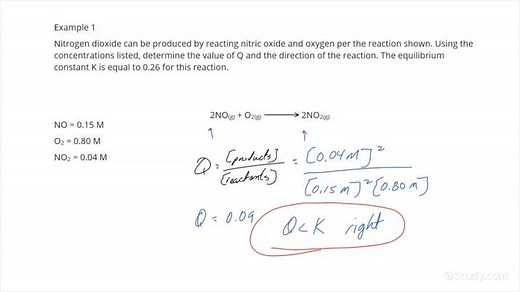 Example 1
Nitrogen dioxide can be produced by reacting nitric oxide and oxygen per the reaction shown. Using the
concentrations listed, determine the value of Q and the direction of the reaction. The equilibrium
constant K is equal to 0.26 for this reaction.
2NO(g) + O2(g) ⟶ 2NO2(g)
NO = 0.15 M
O₂ = 0.80 M
NO₂ = 0.04 M
↑ ↑
Q = [products] / [reactants] = [0.04M]² / [0.15M]²[0.80M]
Q = 0.09
Q<K right
Study.com